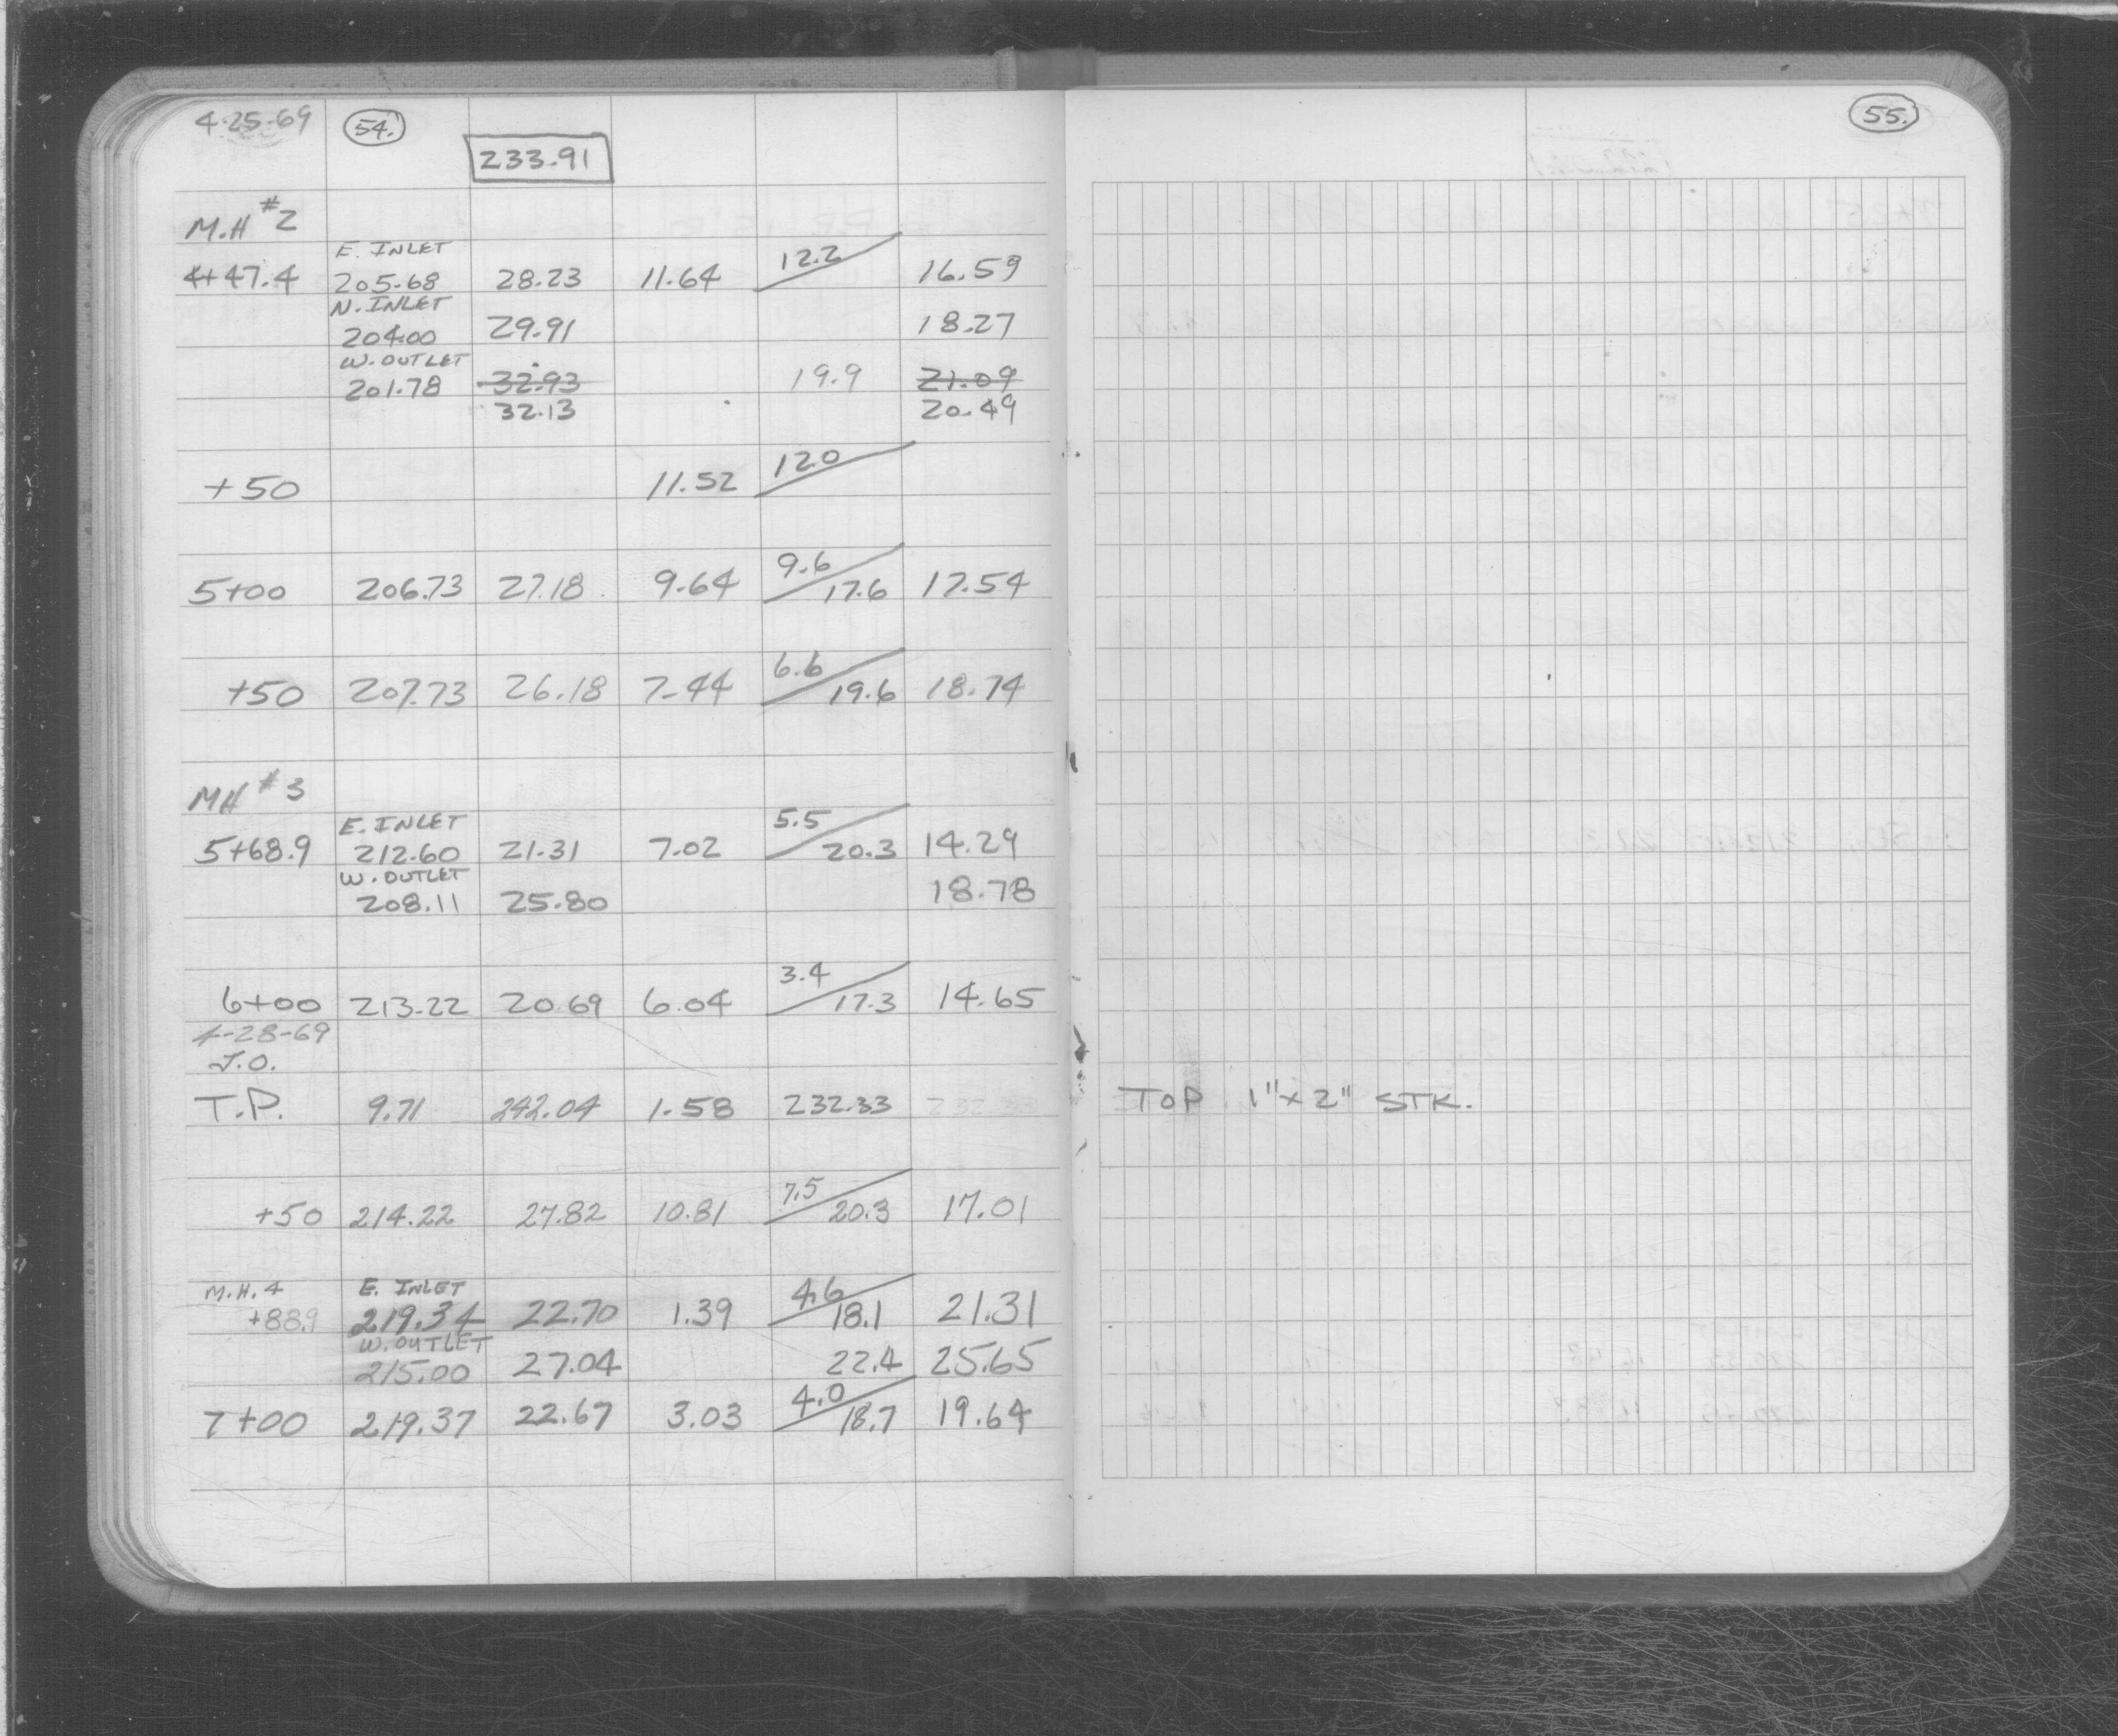 4-25-69 54.
233.91
M.H #2
E. INLET
4+47.4 205.68 28.23 11.64 12.2 16.59
N. INLET
204.00 29.91 18.27
W. OUTLET
201.78 32.93 19.9 21.09
32.13 20.49
+50 11.52 12.0
5+00 206.73 27.18 9.64 9.6/17.6 17.54
+50 207.73 26.18 7.44 6.6/19.6 18.74
MH #3
E. INLET
5+68.9 212.60 21.31 7.02 5.5/20.3 14.29
W. OUTLET
208.11 25.80 18.78
6+00 213.22 20.69 6.04 3.4/17.3 14.65
4-28-69
J.O.
T.P. 9.71 242.04 1.58 232.33
+50 214.22 27.82 10.81 7.5/20.3 17.01
M.H. 4 E. INLET
+88.9 219.34 22.70 1.39 4.6/18.1 21.31
W. OUTLET
215.00 27.04 22.4 25.65
7+00 219.37 22.67 3.03 4.0/18.7 19.64
55.
TOP 1" x 2" STK.